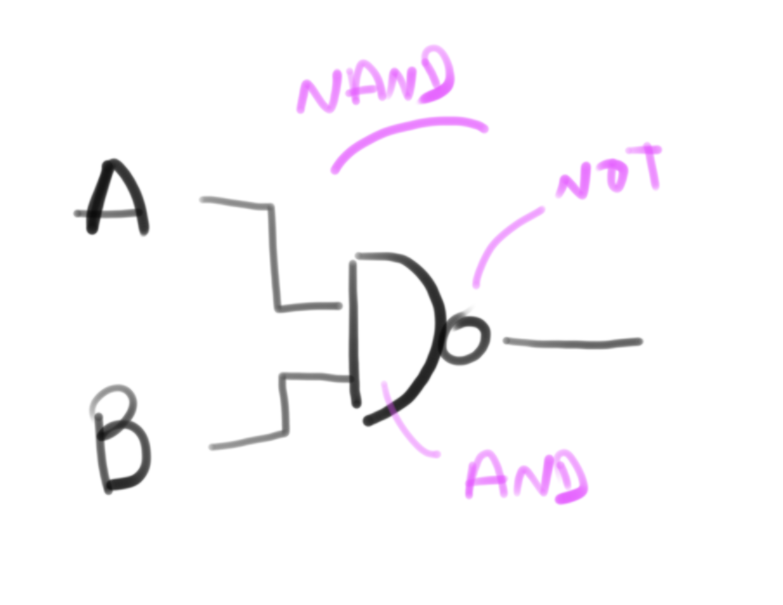 NAND
NOT
A
B
AND